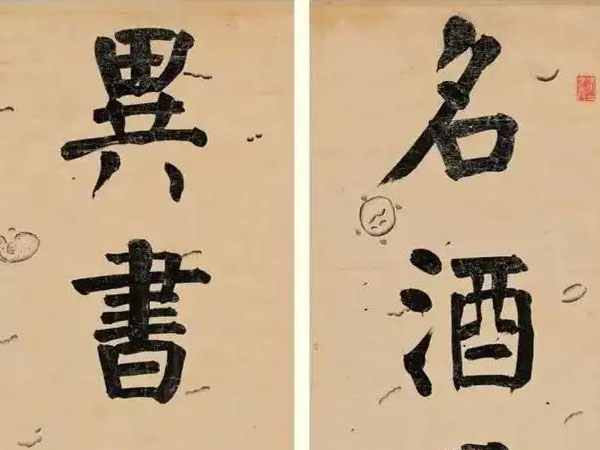 名酒
異書